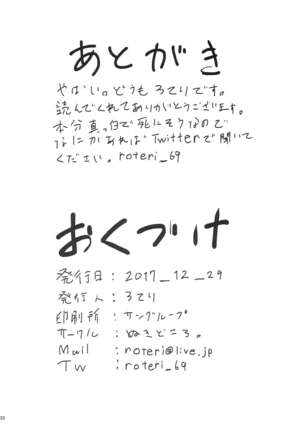 あとがき
やばい。どうもろてりです。
読んでくれてありがとうございます。
本分真っ白で死にそうなので
なにかあればTwitterで聞いて
ください。roteri_69
おくづけ
発行日：2017_12_29
発行人：ろてり
印刷所：サングループ
サークル：ぬきどころ。
Mail：roteri@live.jp
TW：roteri_69